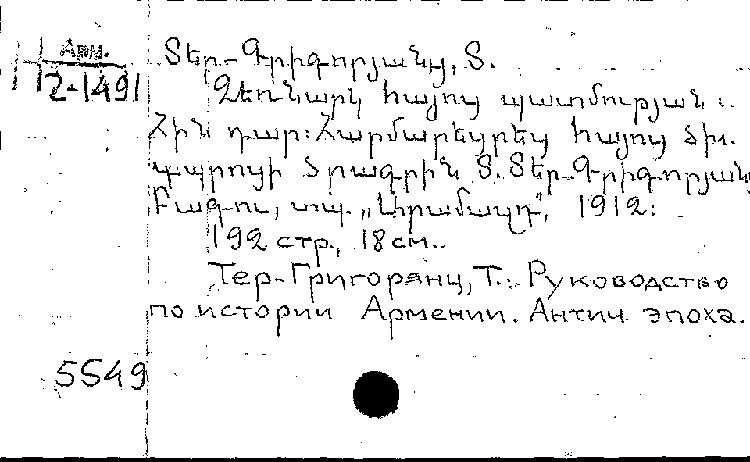 Арм.
2-1491
Տեր-Գրիգորյանց, Տ.
Ձեռնարկ հայոց պատմության:
Հին դար: Հարմարեցրեց հայոց ծխ.
դպրոցի ծրագրին Տ. Տեր-Գրիգորյանց
Բագու, տպ. „Արամազդ“, 1912:
192 стр., 18 см.
Тер-Григорянц, Т. Руководство
по истории Армении. Антич. эпоха.
5549